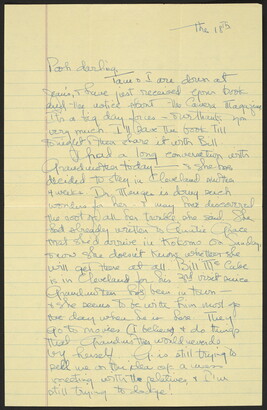 The 18th
Pooh darling
Jane & I are down at
& have just received your book
and the notice about the Cabere Magazine
It's a big day for us - our thanks you
very much I'll save the book till
tonight & then share it with Bill
I had a long conversation with
Grandmother today - & she has
decided to stay in Cleveland another
4 weeks. Dr. is doing such
wonders for her & may have discovered
the root of all her trouble she said. She
had already written to Christie Grace
that she'd arrive in on Sunday,
& now she doesn't know whether she
will get there at all. Bill McCabe
is in Cleveland for his 3rd visit since
Grandmother has been in town
& she seems to be with him most of
the day when he is here. They
go to movies (I believe) & do things
that Grandmother would never do
by herself. G. is still trying to
sell me on the idea of a mass
meeting with the relatives & I'm
still trying to dodge!